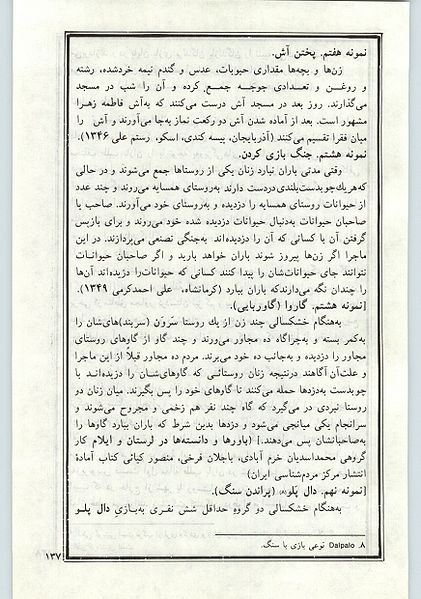 نمونه هفتم. پختن آش.
زن‌ها و بچه‌ها مقداری حبوبات، عدس و گندم نیمه خردشده، رشته
و روغـن و تعـدادی جوجـه جمـع کرده و آن را شب در مسجد
می‌گذارند. روز بعد در مسجد آش درست می‌کنند که به‌آش فاطمه زهـرا
مشهور است. بعد از آماده شدن آش دو رکعت نماز به‌جا می‌آورند و آش را
میان فقرا تقسیم می‌کنند (آذربایجان، پیسه کندی، اسکو، رستم علی ۱۳۴۶).
نمونه هشتم. جنگ بازی کردن.
وقتی مدتی باران نبارد زنان یکی از روستاها جمع می‌شوند و در حالی
که هریک چوبدست‌بلندی دردست دارند به‌روستای همسایه می‌روند و چند عدد
از حیوانات روستای همسایه را دزدیده و به‌روستای خود می‌آورند. صاحب یا
صاحبان حیوانات به‌دنبال حیوانات دزدیده شده خود می‌روند و برای بازپس
گرفتن آن با کسانی که آن را دزدیده‌اند به‌جنگی تصنعی می‌پردازند. در این
ماجرا اگر زن‌ها پیروز شوند باران خواهد بارید و اگر صاحبان حیوانـات
نتوانند جای حیوانات‌شان را پیدا کنند کسانی که حیوانات‌را دزدیده‌اند آن‌ها
را چندان نگه می‌دارندکه باران ببارد (کرمانشاه، علی احمدکرمی ۱۳۴۹).
[نمونه هشتم. گاروا (گاوربایی).
به‌هنگام خشکسالی چند زن از یك روستا سَرَوَن (سربند)های‌شان را
به‌کمر بسته و به‌چراگاه ده مجاور می‌روند و چند گاو از گاوهای روستای
مجاور را دزدیده و به‌جانب ده خود می‌برند. مردم ده مجاور قبلاً از این ماجرا
و علت‌آن آگاهند درنتیجه زنان روستائـی که گاوهای‌شان را دزدیده‌انـد با
چوبدست به‌دزدها حمله می‌کنند تا گاوهای خود را پس بگیرند. میان زنان دو
روستا نبردی در می‌گیرد که گاه چند نفر هم زخمی و مجروح می‌شوند و
سرانجام یکی میانجی می‌شود و دزدها بدین شرط که باران ببارد گاوها را
به‌صاحبانشان پس می‌دهند.] (باورها و دانسته‌ها در لرستان و ایلام کار
گروهی محمداسدیان خرم آبادی، باجلان فرخی، منصور کیائی کتاب آمادهٔ
انتشار مرکز مردم‌شناسی ایران)
[نمونه نهم. دال پَلو(۸) (پراندن سنگ).
به‌هنگام خشکسالی دو گروه حداقل شش نفری به‌بازیِ دال پلـو
۸. Dalpalo نوعی بازی با سنگ.
۱۳۷